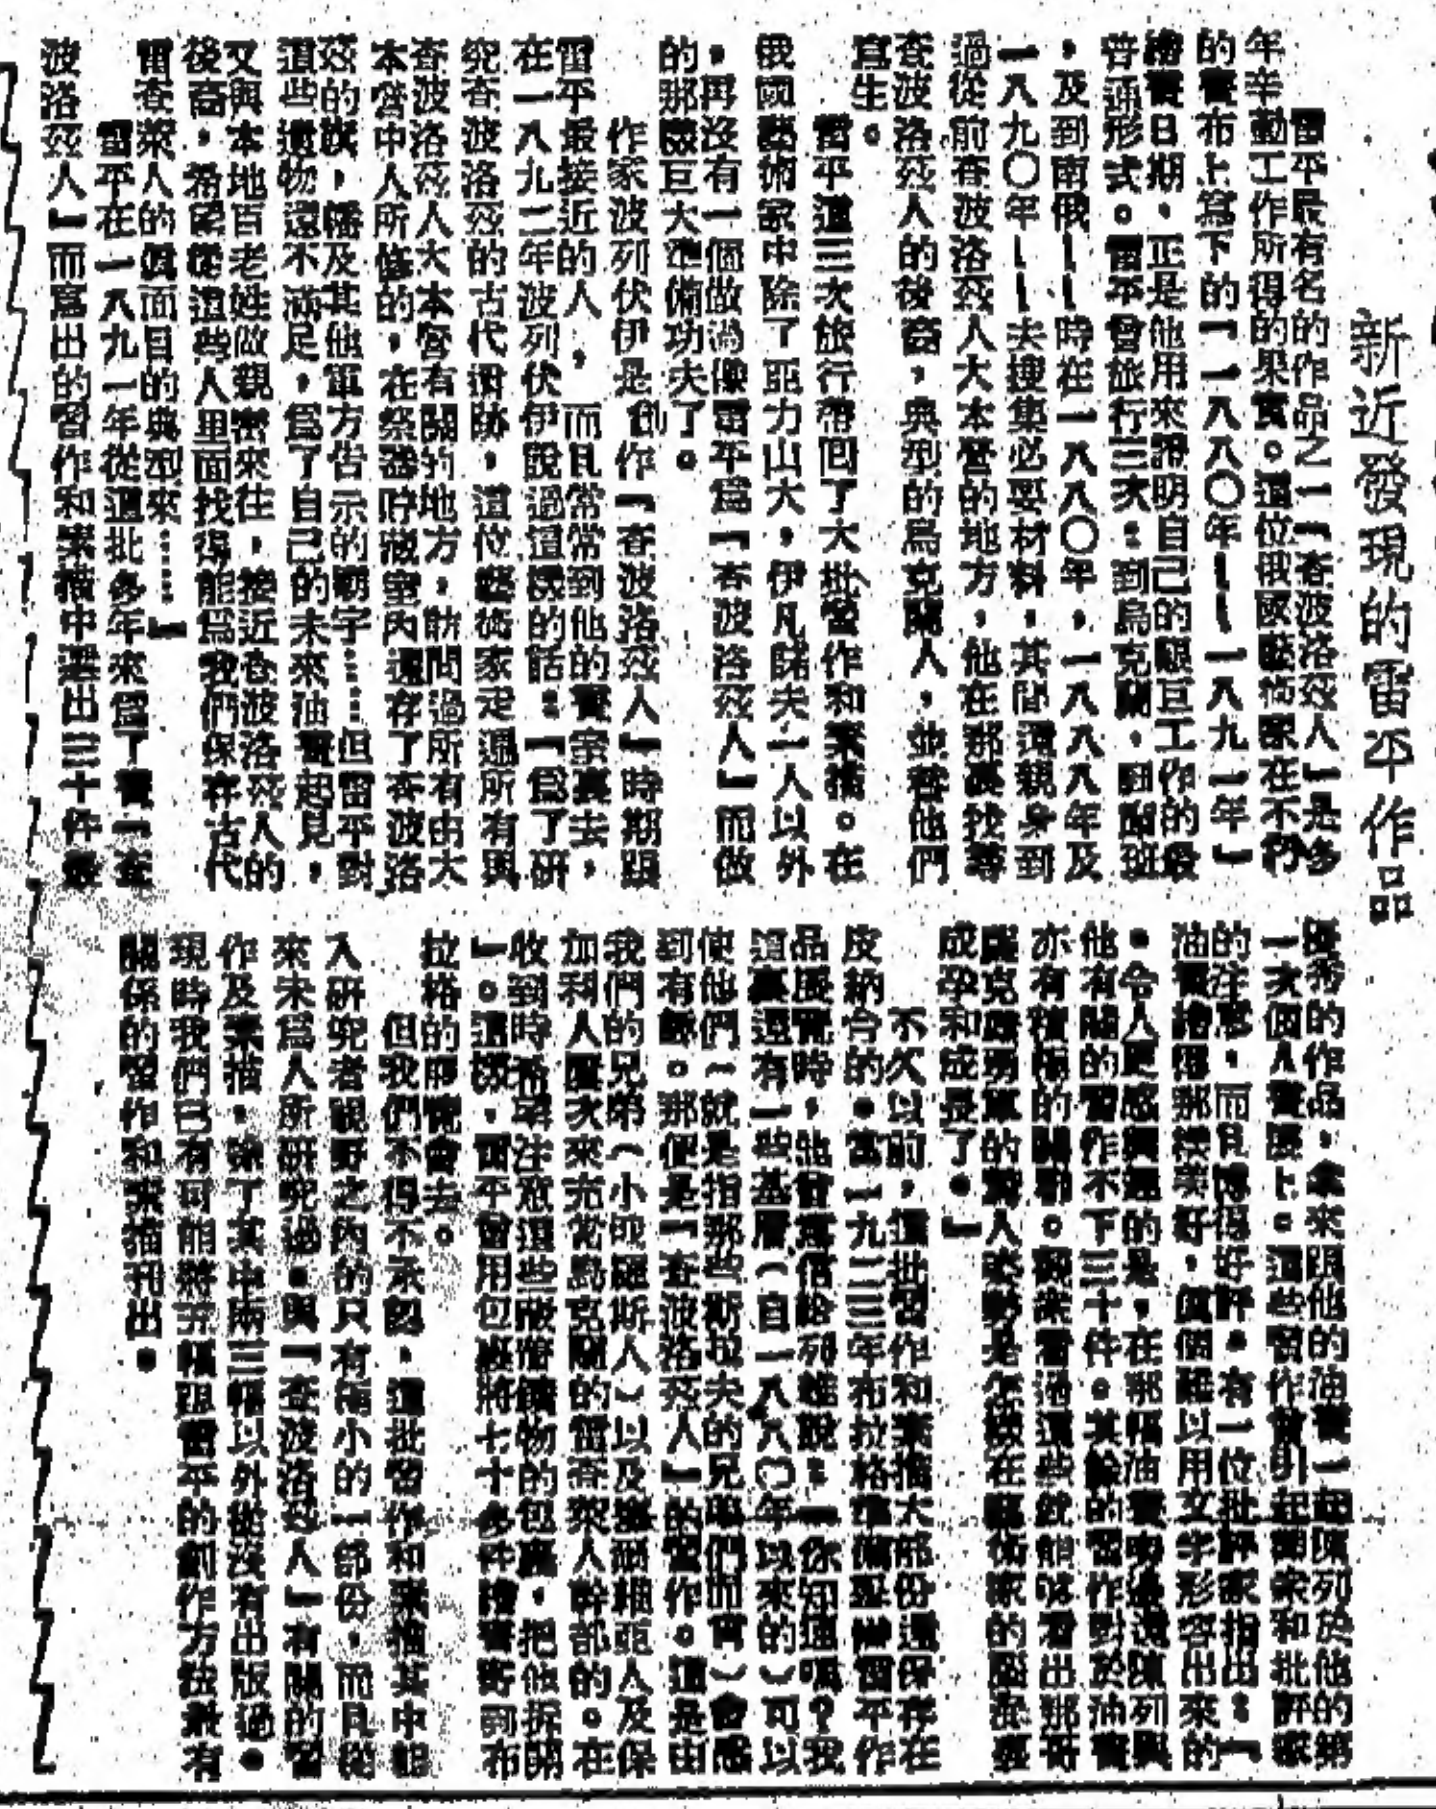 新近發現的雷平作品
雷平最有名的作品之一「查波洛茲人」是多
年辛勤工作所得的果實。這位俄國藝術家在不朽
的畫布上寫下的「一八八〇年——一八九一年」
繪畫日期,正是他用來證明自己的艱巨工作的最
普通形式。雷平曾旅行三次:到烏克蘭,班
,及到南俄——時在一八八〇年,一八八八年及
一八九〇年——去搜集必要材料,其間還親身到
過從前查波洛茲人大本營的地方,他在那裏找尋
查波洛茲人的後裔,典型的烏克蘭人,並替他們
寫生。
雷平這三次旅行帶回了大批習作和素描。在
俄國藝術家中除了亞力山大,伊凡諾夫一人以外
,再沒有一個做過像雷平爲「查波洛茲人」而做
的那樣巨大準備功夫了。
作家波列伏伊是創作「查波洛茲人」時期跟
雷平最接近的人,而且常常到他的畫室裏去,
在一八九二年波列伏伊說過這樣的話:「爲了研
究查波洛茲的古代遺跡,這位藝術家走遍所有與
查波洛茲人大本營有關的地方,訪問過所有由大
本營中人所修的,在祭器貯藏室內還存了查波洛
茲的旗,旛及其他軍方告示的 字……但雷平對
這些遺物還不滿足,爲了自己的未來油畫起見,
又與本地百老姓做親密來往,接近查波洛茲人的
後裔,希望從這些人里面找得能爲我們保存古代
雷查架人的眞面目的典型來……」
雷平在一八九一年從這批多年來爲了畫「查
波洛茲人」而寫出的習作和素描中選出三十件最
優秀的作品,拿來跟他的油畫一起陳列於他的第
一次個人畫展上。這些習作曾引起觀衆和批評家
的注意,而且博得好評。有一位批評家指出:「
油畫繪得那樣美好,眞個難以用文字形容出來的
。令人更感興趣的是,在那幅油畫旁邊還陳列與
他有關的習作不下三十件。其餘的習作對於油畫
亦有積極的關聯。觀衆看過這些就能够看出那哥
薩克 勇軍的驚人姿勢是怎樣在藝術家的腦海裏
成孕和成長了。」
不久以前,這批習作和素描大部份還保存在
皮納令的。當一九二三年布拉格準備舉辦雷平作
品展覽時,他曾寫信給列維說:「你知道嗎?我
這裏還有一些基層(自一八八〇年以來的)可以
使他們(就是指那些斯拉夫的兄弟們而言)會感
到有 。那便是「查波洛茲人」的習作。這是由
我們的兄弟(小 羅斯人)以及 亞人及保
加利人屢次來充當烏克蘭的雷查架人幹部的。在
收到時希望注意這些 物的包裹,把他拆開
」。這樣,雷平曾用包裹將七十多件繪畫寄到布
拉格的展覽會去。
但我們不得不承認,這批習作和素描其中組
入研究者視野之內的只有極小的一部份,而且從
來未爲人所研究過。與「查波洛茲人」有關的習
作及素描,除了其中兩三幅以外從沒有出版過。
現時我們已有可能將 幅跟雷平的創作方法最有
關係的習作和素描刊出。